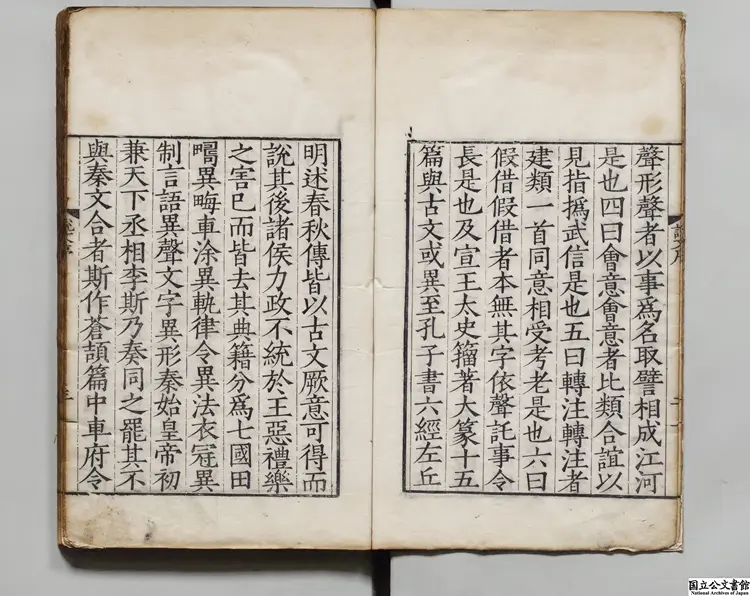 聲形聲者以事爲名取譬相成江河
是也四曰會意會意者比類合誼以
見指撝武信是也五曰轉注轉注者
建類一首同意相受考老是也六曰
假借假借者本無其字依聲託事令
長是也及宣王太史籀著大篆十五
篇與古文或異至孔子書六經左丘
明述春秋傳皆以古文厥意可得而
說其後諸侯力政不統於王惡禮樂
之害己而皆去其典籍分爲七國田
疇異畮車涂異軌律令異法衣冠異
制言語異聲文字異形秦始皇帝初
兼天下丞相李斯乃奏同之罷其不
與秦文合者斯作蒼頡篇中車府令
国立公文書館
National Archives of Japan